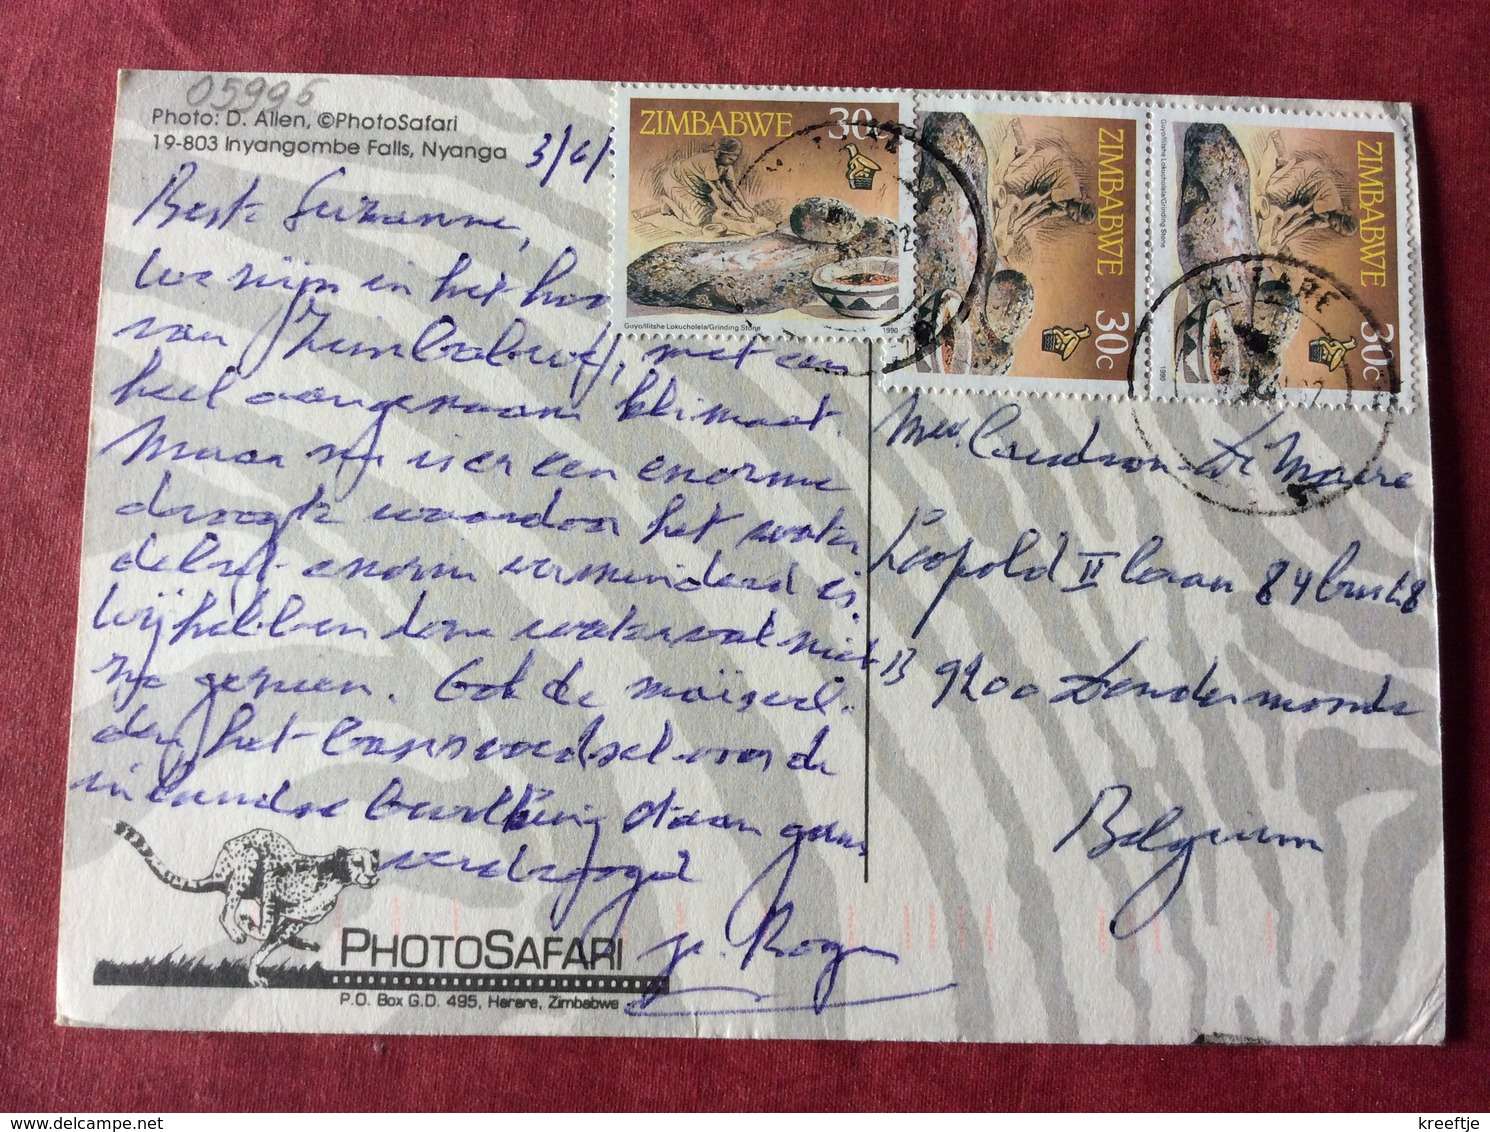 05996
Photo: D. Allen, ©PhotoSafari
19-803 Inyangombe Falls, Nyanga
3/6/
Beste Suzanne,
We zijn in het
van Zimbabwe, met een
heel aangenaam klimaat.
Maar nu is er een enorme
droogte waardoor het water
debiet enorm verminderd is.
Wij hebben deze waterval niet
genien. Ook de maïsvel-
den, het basisvoedsel voor de
inlandse bevolking staan gans
verdroogd
Roger
PHOTOSAFARI
P.O. Box G.D. 495, Harare, Zimbabwe
ZIMBABWE 30c
Guyo/Ilitshe Lokucholela/Grinding Stone 1990
ZIMBABWE 30c
ZIMBABWE 30c
Guyo/Ilitshe Lokucholela/Grinding Stone 1990
MUTARE
Mev. Caudron-De Maere
Leopold II laan 84 bus 28
B 9200 Dendermonde
Belgium
kreeftje